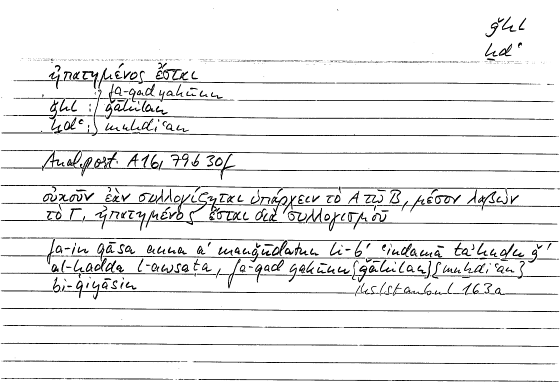 ǧhl
ḫdʿ
ἠπατημένος ἔσται
fa-qad yakūnu
ǧhl : ǧāhilan
ḫdʿ : muḫdiʿan
Anal. post. A 16, 79 b 30f
οὐκοῦν ἐὰν συλλογίζηται ὑπάρχειν τὸ Α τῷ Β, μέσον λαβὼν
τὸ Γ, ἠπατημένος ἔσται διὰ συλλογισμοῦ
fa-in qāsa anna a' mauǧūdatun li-b' ʿindamā ta'ḫuḏu ǧ'
al-ḥadda l-awsaṭa, fa-qad yakūnu {ǧāhilan} {muḫdiʿan}
bi-qiyāsin Hs Istanbul 163a